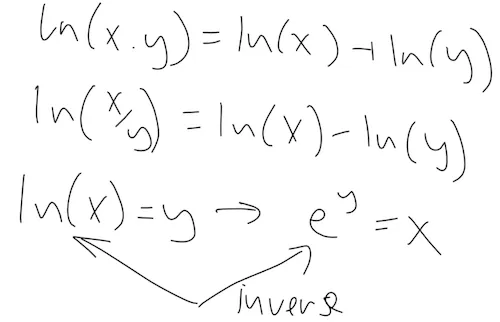 ln(x.y)=ln(x)+ln(y)
ln(x/y)=ln(x)-ln(y)
ln(x)=y → e^y=x
inverse